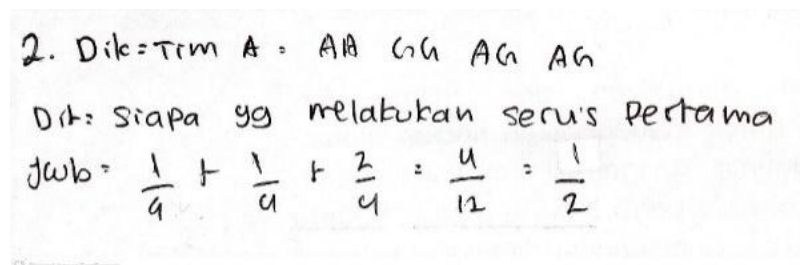 2. Dik = Tim A = AA GG AG AG
Dit = Siapa yg melakukan servis pertama
Jwb = 1/4 + 1/4 + 2/4 = 4/12 = 1/2